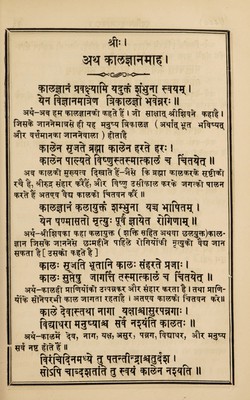 श्रीः।
अथ कालज्ञानमाह।
कालज्ञानं प्रवक्ष्यामि यदुक्तं शंभुना स्वयम्।
येन विज्ञानमात्रेण त्रिकालज्ञो भवेन्नरः॥
अर्थ-अब हम कालज्ञानको कहते हैं। जो साक्षात् श्रीशिवने कहा।
जिसके जाननेमात्रसे ही यह मनुष्य त्रिकालज्ञ (अर्थात् भूत भविष्यत्
और वर्त्तमानका जाननेवाला) होताहै
कालेन सृजते ब्रह्मा कालेन हरते हरः।
कालेन पाल्यते विष्णुस्तस्मात्कालं च चिंतयेत्॥
अब कालको मुख्यत्व दिखाते हैं-जैसे कि ब्रह्मा कालकरके सृष्टिको
रचै है; श्रीरुद्र संहार करैहै; और विष्णु उसीकाल करके जगत्को पालन
करते हैं अतएव वैद्य कालको चिंतवन करै॥
कालज्ञानं कलायुक्तं शम्भुना यच्च भाषितम्।
येन षण्मासतो मृत्युः पूर्वं ज्ञायेत रोगिणाम्॥
अर्थ-श्रीशिवका कहा कलायुक्त (शक्ति सहित अथवा छलयुक्त) काल-
ज्ञान जिसके जाननेसे छःमहीने पहिले रोगियोंकी मृत्युको वैद्य जान
सकता है [उसको कहते है]
कालः सृजति भूतानि कालः संहरते प्रजाः।
कालः सुप्तेषु जागर्त्ति तस्मात्कालं च चिंतयेत्॥
अर्थ-कालही प्राणियोंको उत्पन्नकर और संहार करता है। तथा प्राणि-
योंके सोनेपरभी काल जागता रहताहै। अतएव कालको चिंतवन करे॥
काले देवास्तथा नागा यक्षाश्चासुरपन्नगाः।
विद्याधरा मनुष्याश्च सर्वे नश्यंति कालतः॥
अर्थ-कालमें देव, नाग, यक्ष, असुर, पन्नग, विद्याधर, और मनुष्य
सर्व नष्ट होते हैं॥
विरंचिदिनमध्ये तु पतन्तीन्द्राश्चतुर्दश।
सोऽपि चाब्दशतांते तु स्वयं कालेन नश्यति॥